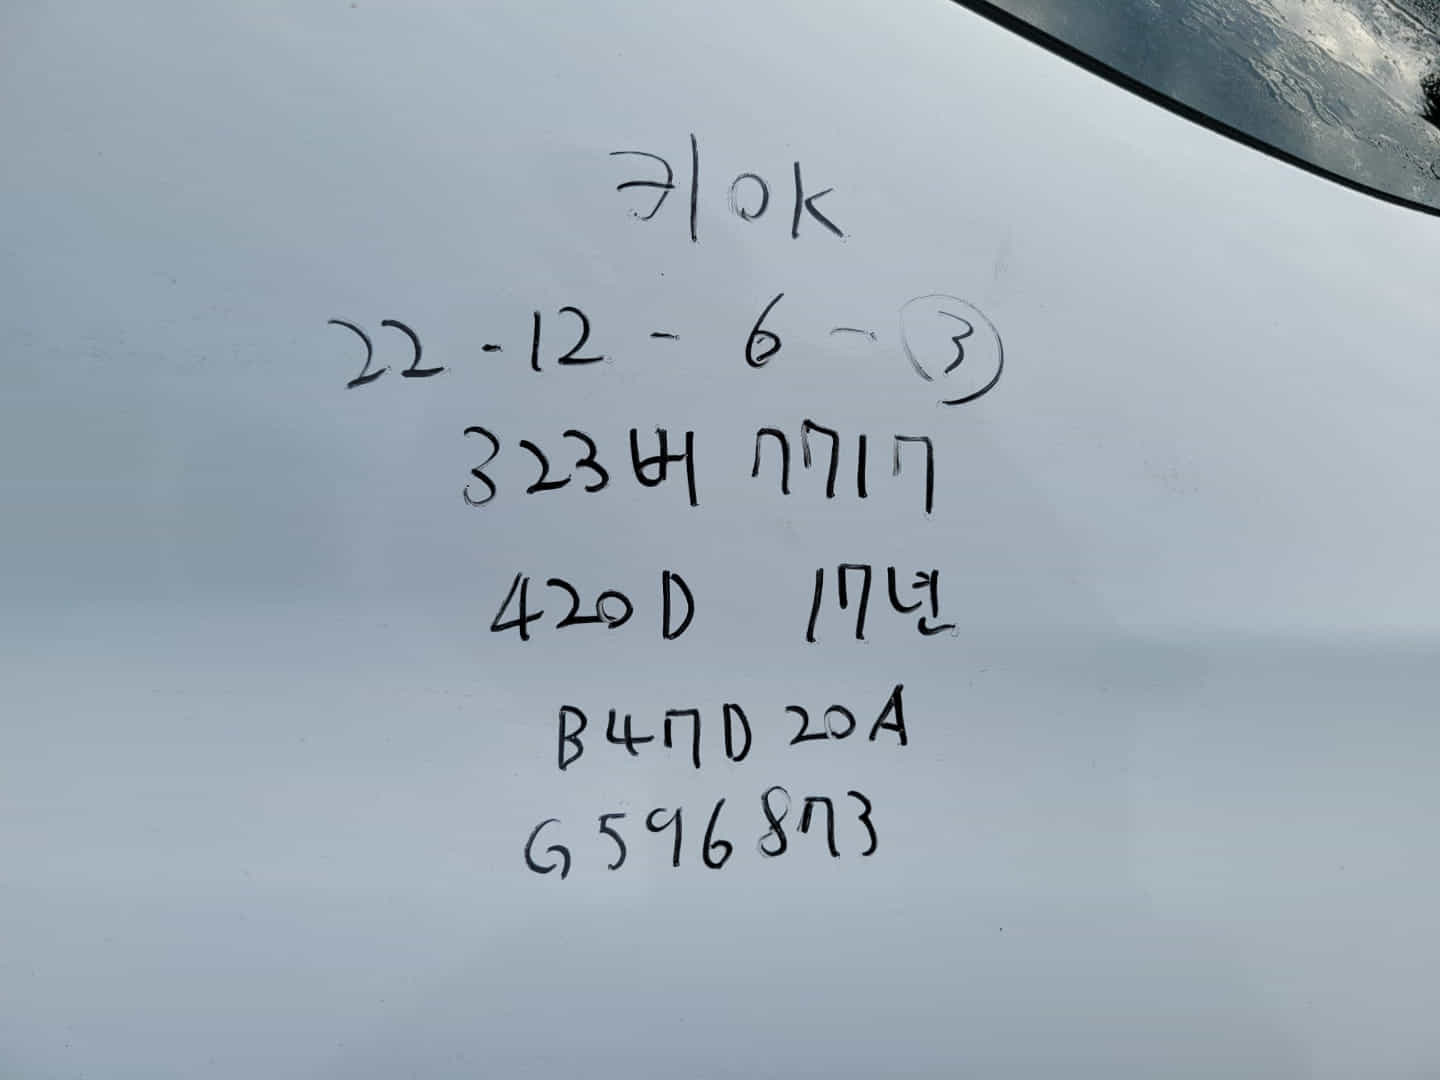 키 OK
22-12-6-③
323버 7717
420D 17년
B47D20A
G596873